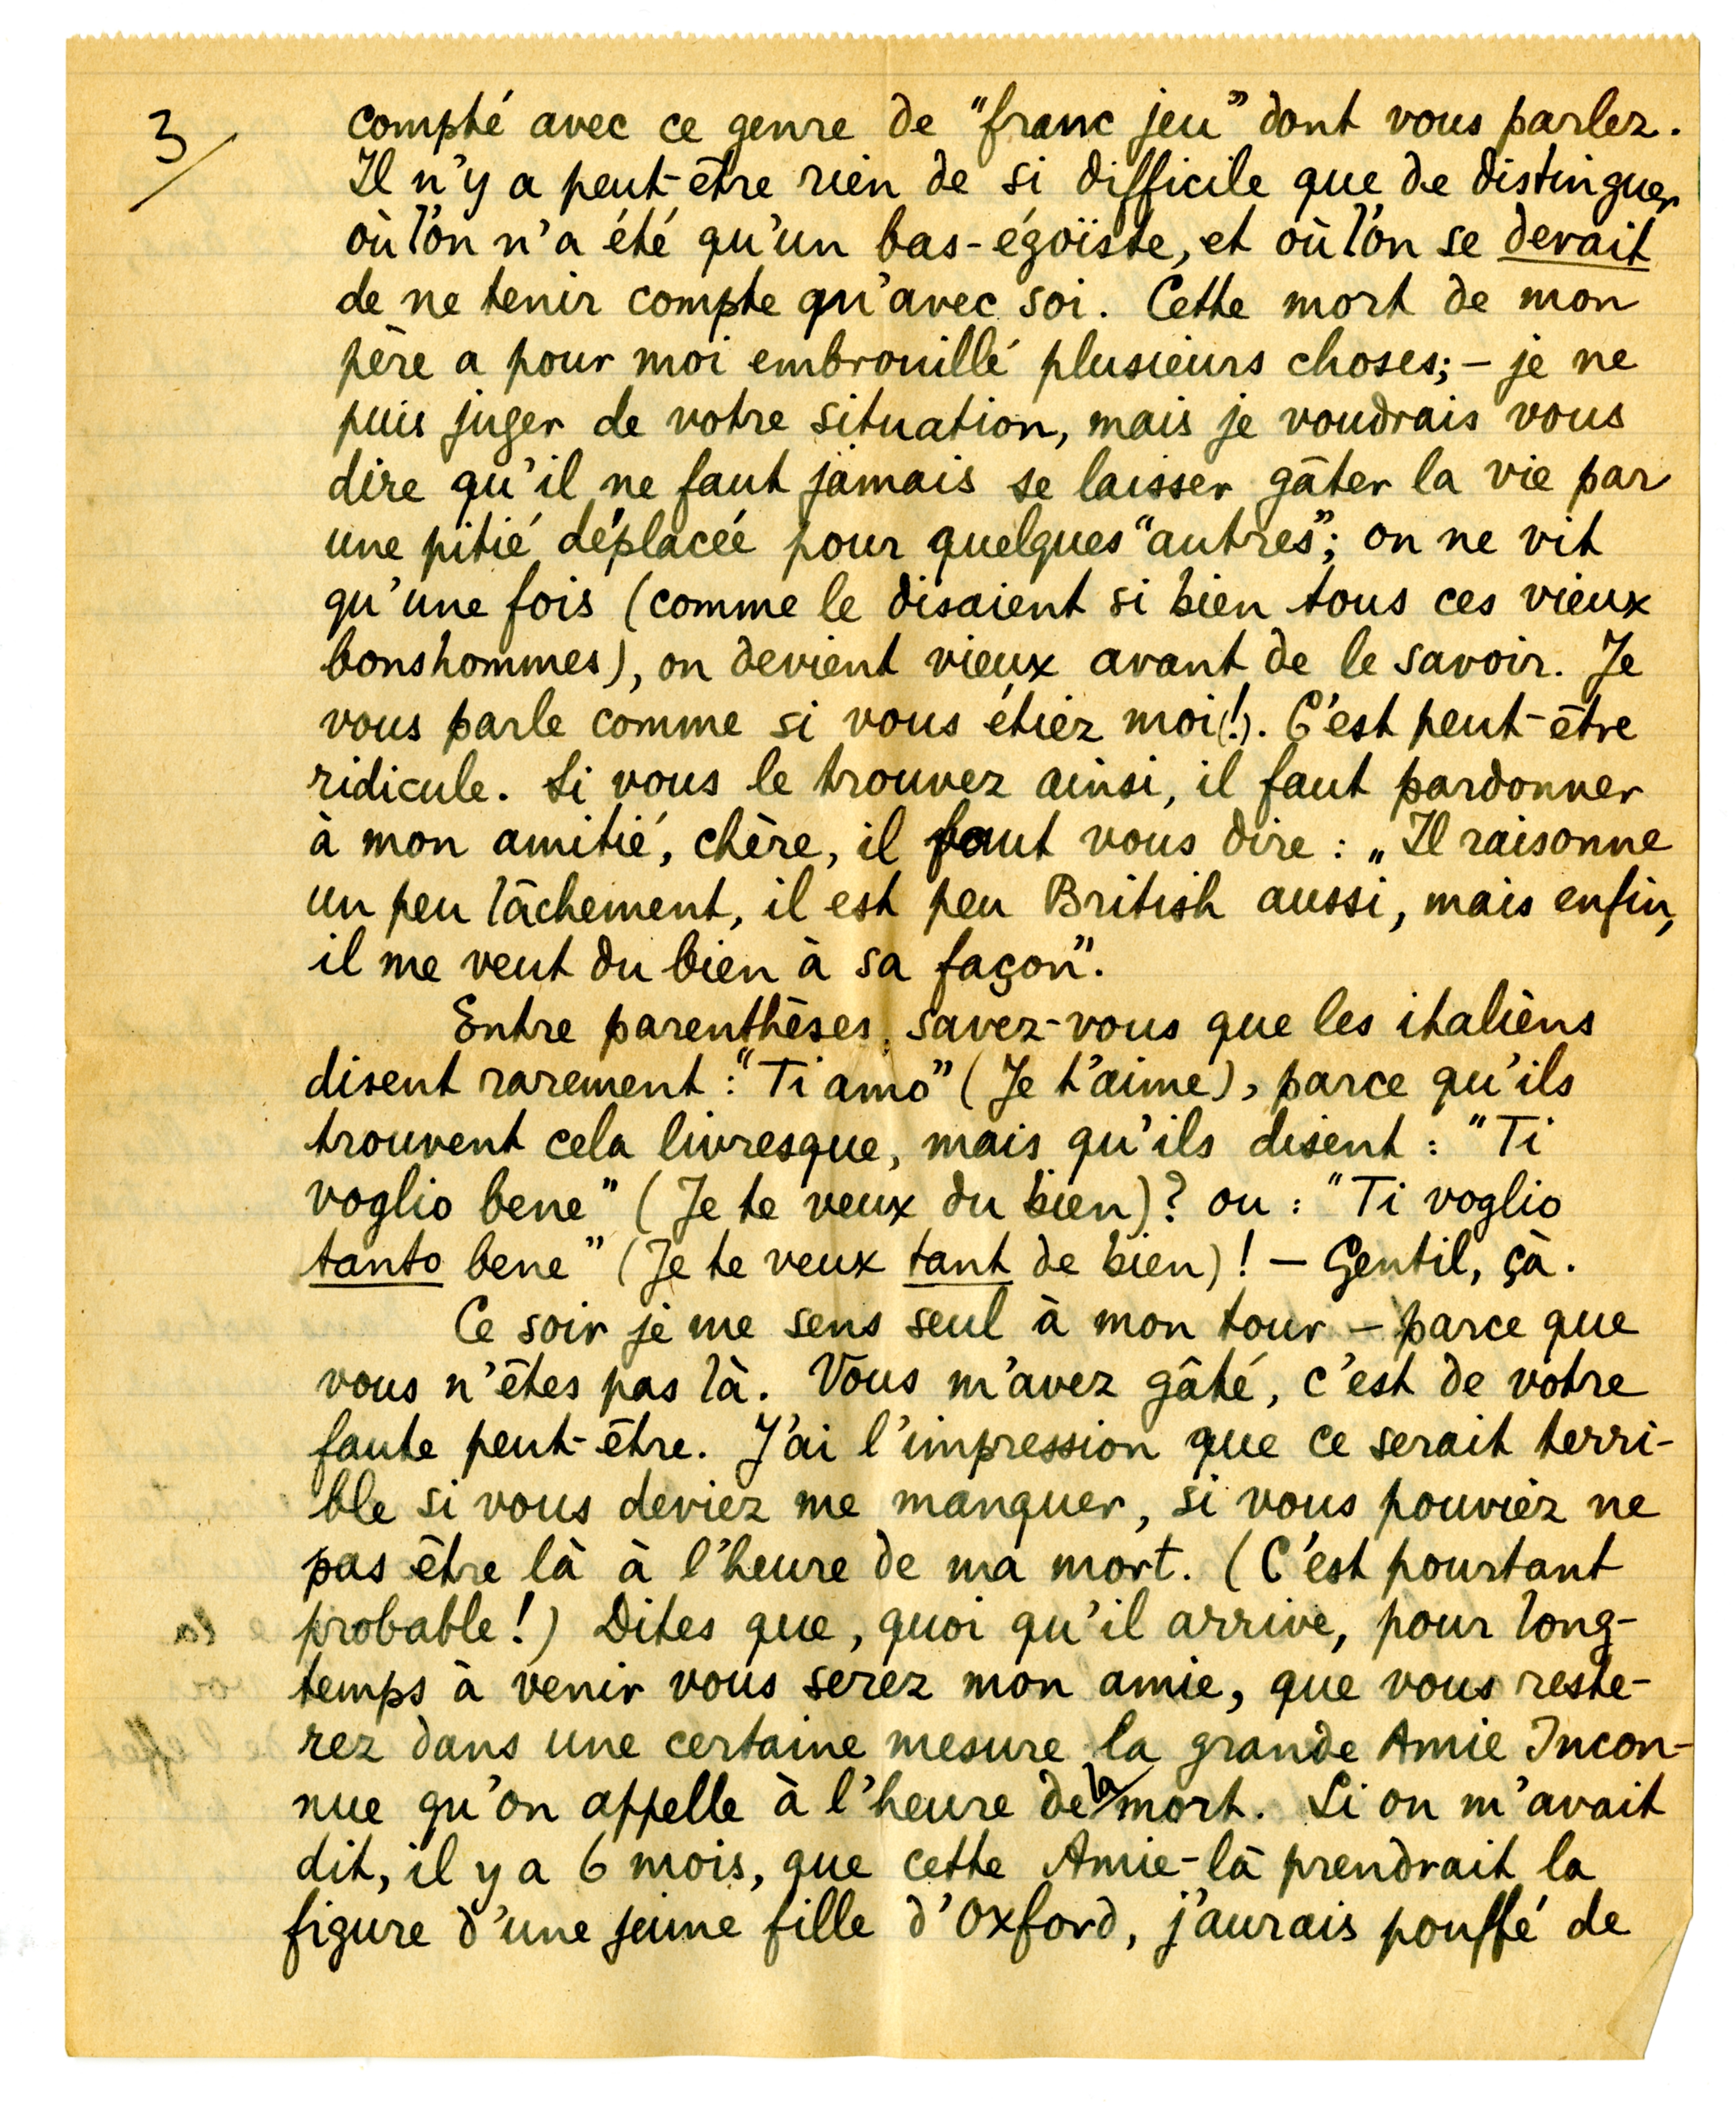 3/
compté avec ce genre de "franc jeu" dont vous parlez.
Il n'y a peut-être rien de si difficile que de distinguer
où l'on n'a été qu'un bas-égoïste, et où l'on se devait
de ne tenir compte qu'avec soi. Cette mort de mon
père a pour moi embrouillé plusieurs choses; – je ne
puis juger de votre situation, mais je voudrais vous
dire qu'il ne faut jamais se laisser gâter la vie par
une pitié déplacée pour quelques "autres"; on ne vit
qu'une fois (comme le disaient si bien tous ces vieux
bonshommes), on devient vieux avant de le savoir. Je
vous parle comme si vous étiez moi(!). C'est peut-être
ridicule. Si vous le trouvez ainsi, il faut pardonner
à mon amitié, chère, il faut vous dire : „Il raisonne
un peu lâchement, il est peu British aussi, mais enfin,
il me veut du bien à sa façon".
Entre parenthèses, savez-vous que les italièns
disent rarement : "Ti amo" (Je t'aime), parce qu'ils
trouvent cela livresque, mais qu'ils disent : "Ti
voglio bene" (Je te veux du bien)? ou : "Ti voglio
tanto bene" (Je te veux tant de bien)! – Gentil, çà.
Ce soir je me sens seul à mon tour – parce que
vous n'êtes pas là. Vous m'avez gâté, c'est de votre
faute peut-être. J'ai l'impression que ce serait terri-
ble si vous deviez me manquer, si vous pouviez ne
pas être là à l'heure de ma mort. (C'est pourtant
probable!) Dites que, quoi qu'il arrive, pour long-
temps à venir vous serez mon amie, que vous reste-
rez dans une certaine mesure la grande Amie Incon-
nue qu'on appelle à l'heure de la mort. Si on m'avait
dit, il y a 6 mois, que cette Amie-là prendrait la
figure d'une jeune fille d'Oxford, j'aurais pouffé de